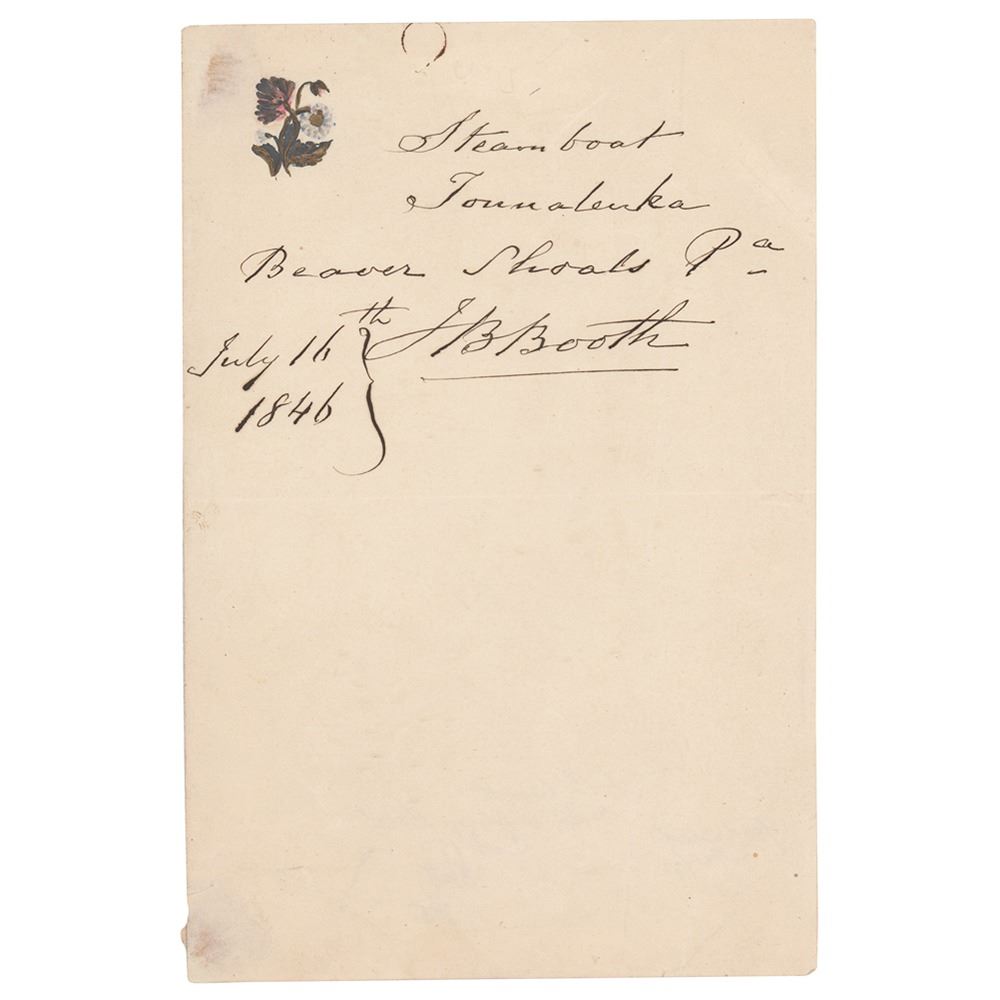 Steamboat
Tonnaleuka
Beaver Shoals Pa
July 16th } J B Booth
1846